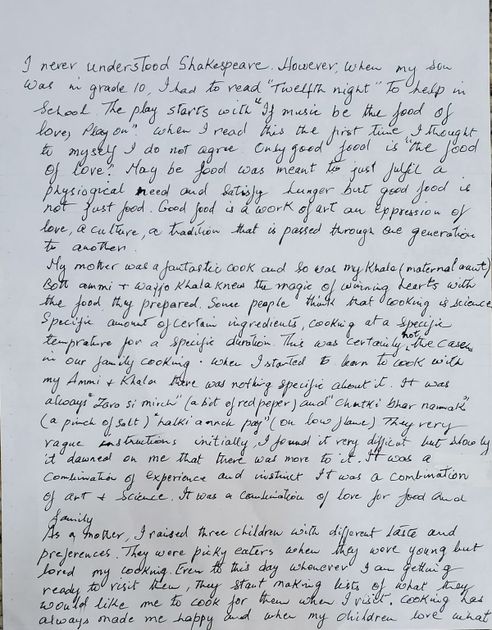 I never understood Shakespeare. However, when my son
was in grade 10, I had to read "Twelfth night" to help in
School. The play starts with "If music be the food of
love, Play on". When I read this the first time, I thought
to myself I do not agree. Only good food is "the food
of love". May be food was meant to just fulfil a
physiogical need and satisfy hunger but good food is
not just food. Good food is a work of art an expression of
love, a culture, a tradition that is passed through one generation
to another.
My mother was a fantastic cook and so was my Khala (maternal aunt)
Both ammi + Waffo Khala knew the magic of winning hearts with
the food they prepared. Some people think that cooking is science
Specific amount of certain ingredients, cooking at a specific
temprature for a specific duration. This was certainly not the case
in our family cooking. When I started to learn to cook with
my Ammi + Khala there was nothing specific about it. It was
always "Zara si mirch" (a bit of red peper) and "Chutki bhar namak"
(a pinch of salt) "halki aanch par" (on low flame) They very
vague instructions initially, I found it very difficut but slowly
it dawned on me that there was more to it. It was a
Combination of experience and instinct It was a combination
of art + Science. It was a combination of love for food and
family
As a mother, I raised three children with different taste and
preferences. They were picky eaters when they were young but
loved my cooking. Even to this day whenever I am getting
ready to visit them, they start making lists of what they
would like me to cook for them when I visit. Cooking has
always made me happy and when my children love what